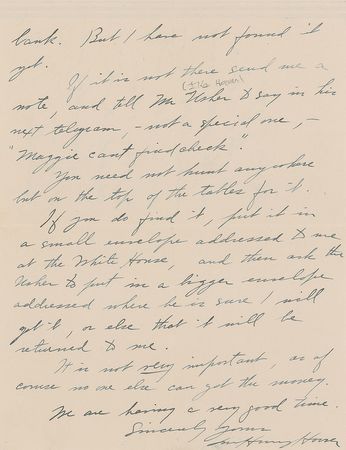 bank. But I have not found it
yet.
If it is not there send me a
note, and tell Mr Usher to say in his
next telegram, - not a special one, -
"Maggie cant find check".
You need not hunt anywhere
but on the top of the tables for it.
If you do find it, put it in
a small envelope addressed to me
at the White House, and then ask the
Usher to put in a bigger envelope
addressed where he is sure I will
get it, or else that it will be
returned to me.
It is not very important, as of
course no one else can get the money.
We are having a very good time.
Sincerely Yours
Lou Henry Hoover